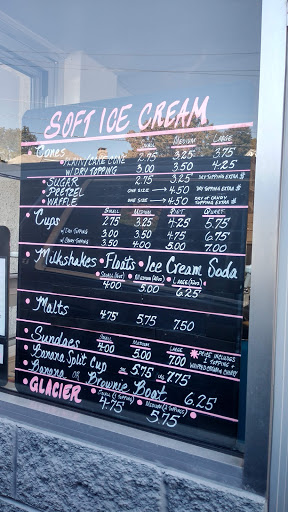 SOFT ICE CREAM
SMALL MEDIUM LARGE
• Cones
• PLAIN/CAKE CONE 2.75 3.25 3.75
W/DRY TOPPING 3.00 3.50 4.25
• SUGAR 3.25 DRY TOPPING EXTRA $
• PRETZEL ONE SIZE → 4.50 DRY TOPPING EXTRA $
• WAFFLE ONE SIZE → 4.50
SMALL MEDIUM PINT QUART
• Cups 2.75 3.25 4.25 5.75
3.25 3.50 4.75 6.75
3.50 4.00 5.00 7.00
• Milkshakes • Floats • Ice Cream Soda
4.00 5.00 6.25
• Malts 4.75 5.75 7.50
SMALL MEDIUM LARGE
• Sundaes 4.00 5.00 7.00 PRICE INCLUDES
1 TOPPING +
WHIPPED CREAM & CHERRY
• Banana Split Cup 5.75 7.75
• Banana or Brownie Boat 6.25
• GLACIER 4.75 5.75